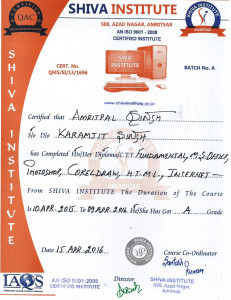 QAC
SHIVA INSTITUTE
588, AZAD NAGAR, AMRITSAR
AN ISO 9001 : 2008
CERTIFIED INSTITUTE
CERT. NO.
QMS/SI/13/1696
BATCH No. A
SHIVA INSTITUTE
www.shivainstitute.co.in
Certified that AMRITPAL SINGH
S/o D/o KARAMJIT SINGH
has Completed His/Her Diploma/C.T.T. FUNDAMENTAL, M.S. OFFICE,
PHOTOSHOP, CORELDRAW, H.T.M.L., INTERNET
From SHIVA INSTITUTE The Duration of The Course
is 10 APR 2015 TO 09 APR 2016 He/She Has Got A Grade
Date 15 APR. 2016
Course Co-Ordinator
Director
SHIVA INSTITUTE
588, Azad Nagar,
Amritsar.
IAQS
AN ISO 9001: 2008
CERTIFIED INSTITUTE